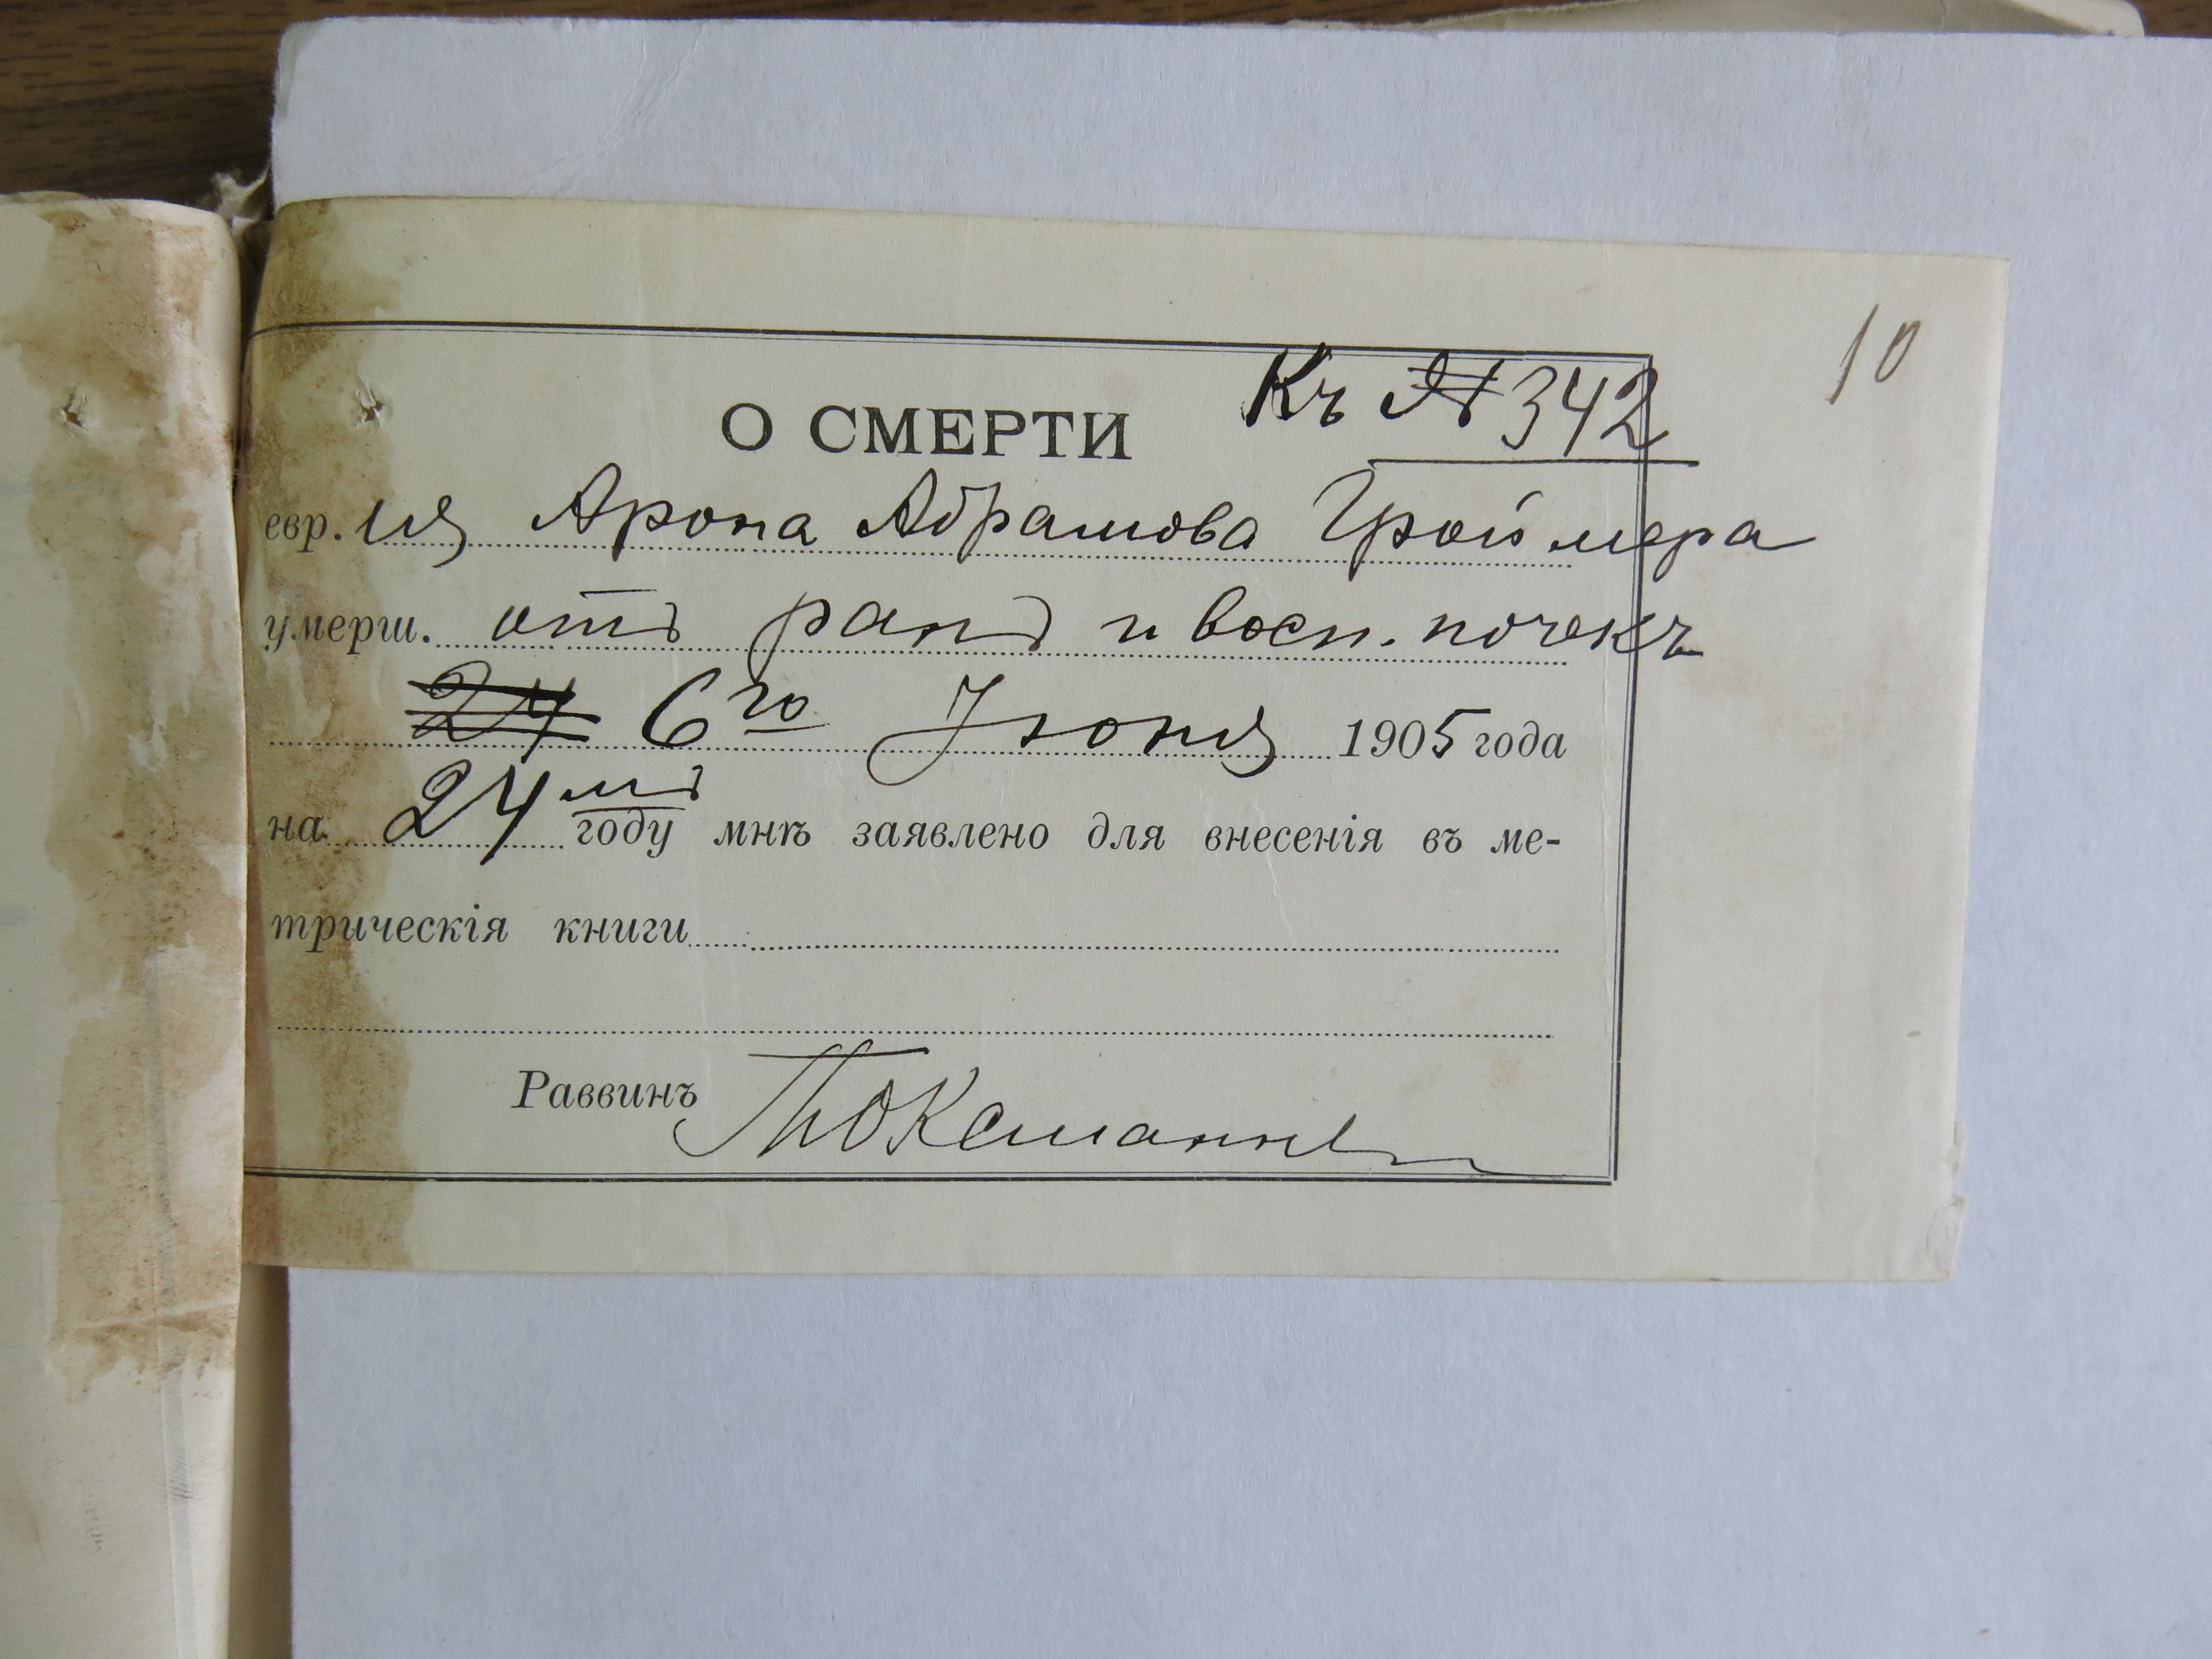 10
Къ № 342
О СМЕРТИ
евр. ея Арона Абрамова Гроймера
умерш. отъ ранъ и восп. почекъ
24 6го Іюня 1905 года
на 24мъ году мнѣ заявлено для внесенія въ ме-
трическія книги
Раввинъ